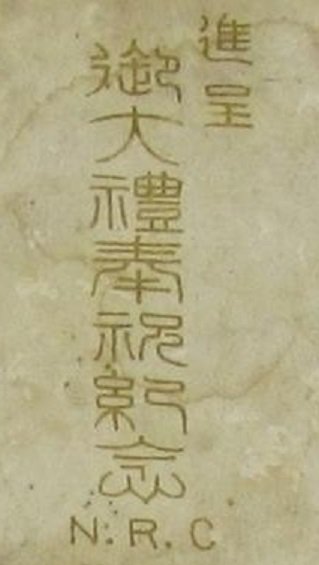 進呈
御大禮奉祝紀念
N.R.C